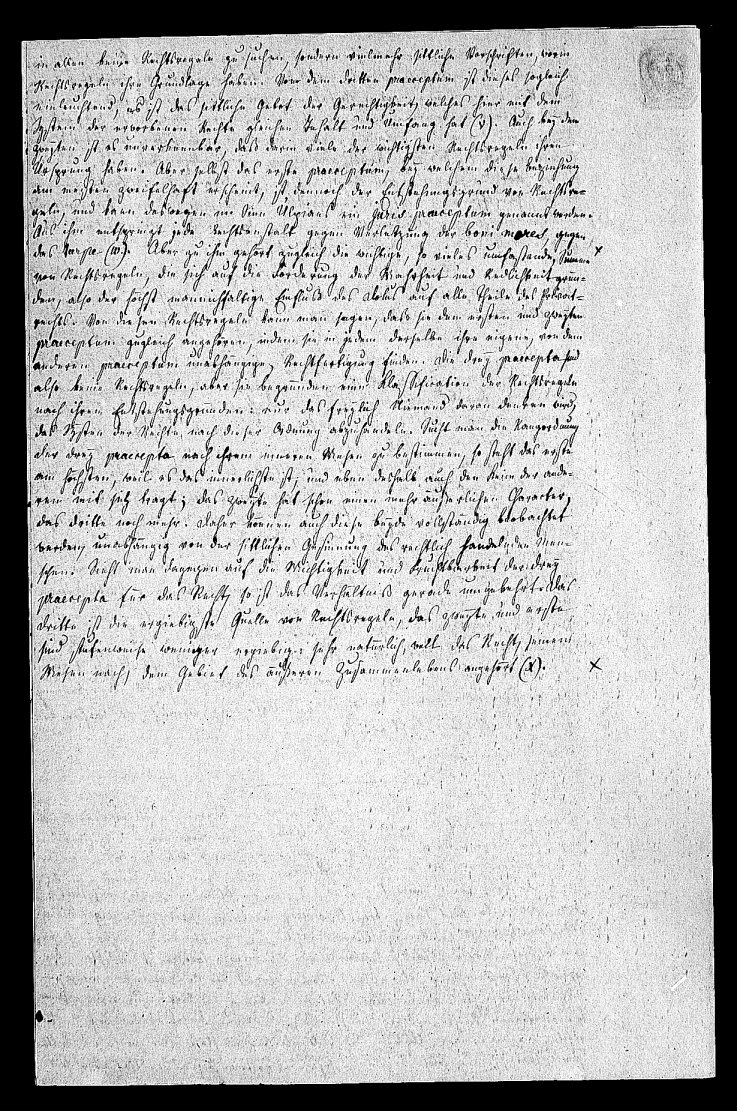 in allen keine Rechtsregeln zu suchen, sondern vielmehr sittliche Vorschriften, worin
Rechtsregeln ihre Grundlage haben. Von dem dritten praeceptum ist dieses sogleich
einleuchtend, es ist das sittliche Gebot der Gerechtigkeit, welches hier mit dem
System der erworbenen Rechte gleichen Inhalt und Umfang hat (v). Auch bey dem
zweyten ist es unverkennbar, daß darin viele der wichtigsten Rechtsregeln ihren
Ursprung haben. Aber selbst das erste praeceptum, bey welchem diese Beziehung
am meisten zweifelhaft erscheint, ist dennoch der Entstehungsgrund von Rechtsre-
geln, und kann deswegen im Sinn Ulpians ein juris praeceptum genannt werden.
Aus ihm entspringt jede Rechtsanstalt gegen Verletzung der boni mores, gegen
das turpe (w). Aber zu ihm gehört zugleich die wichtige, so vieles umfassende, Summe
von Rechtsregeln, die sich auf die Forderung der Wahrheit und Redlichkeit grün-
den, also der höchst mannichfaltige Einfluß des dolus auf alle Theile des Privat-
rechts. Von diesen Rechtsregeln kann man sagen, daß sie dem ersten und zweyten
praeceptum zugleich angehören, indem sie in jedem derselben ihre eigene, von dem
anderen praeceptum unabhängige, Rechtfertigung finden. Die drey praecepta sind
also keine Rechtsregeln, aber sie begründen eine Klassification der Rechtsregeln
nach ihren Entstehungsgründen: nur daß freylich Niemand daran denken wird,
das System der Rechte nach dieser Ordnung abzuhandeln. Sucht man die Rangordnung
der drey praecepta nach ihrem inneren Wesen zu bestimmen, so steht das erste
am höchsten, weil es das innerlichste ist, und eben deshalb auch den Keim der ande-
ren mit sich trägt; das zweyte hat schon einen mehr äußerlichen Character,
das dritte noch mehr. Daher können auch diese beyde vollständig beobachtet
werden, unabhängig von der sittlichen Gesinnung des rechtlich handelnden Men-
schen. Sieht man dagegen auf die Wichtigkeit und Fruchtbarkeit der drey
praecepta für das Recht, so ist das Verhältniß gerade umgekehrt: das
dritte ist die ergiebigste Quelle von Rechtsregeln, das zweyte und erste
sind stufenweise weniger ergiebig: sehr natürlich, weil das Recht, seinem
Wesen nach, dem Gebiet des äußeren Zusammenlebens angehört (x).